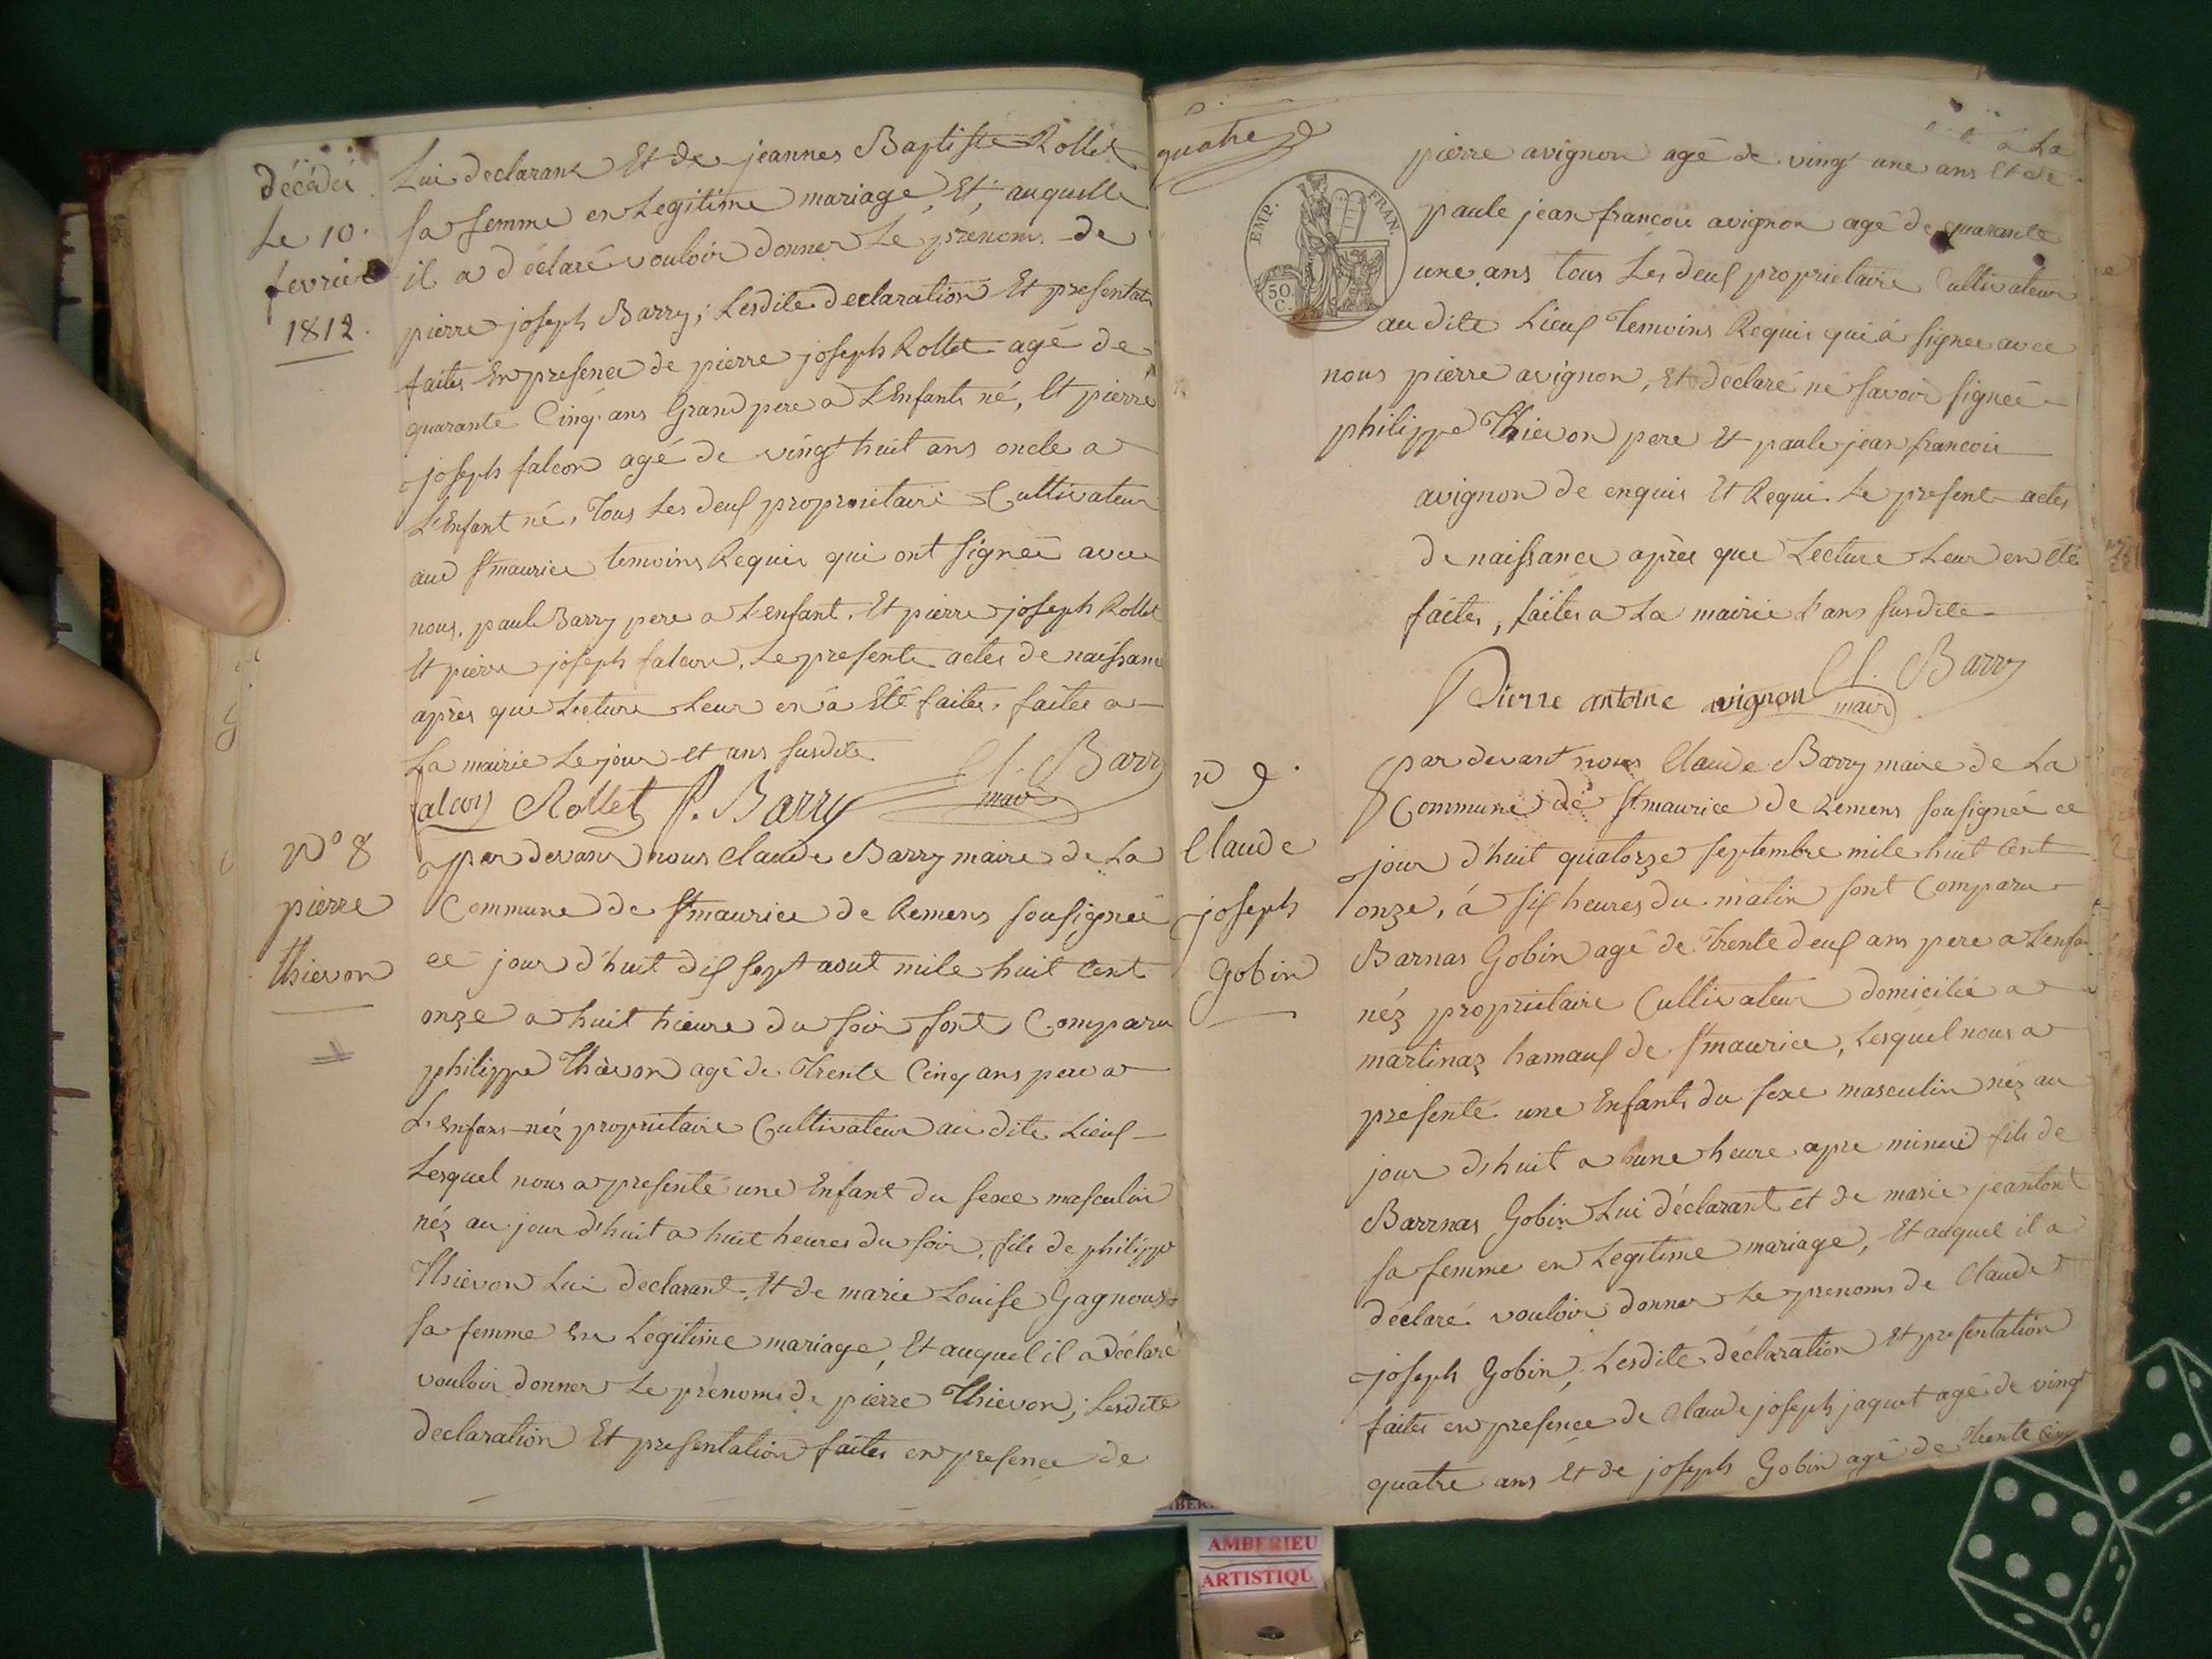 décédé
Le 10.
fevrier
1812.
Lui declarant Et de jeannes Baptiste Rollet
sa femme en Legitime mariage, Et, auquelle
il a déclaré vouloir donner Le prenoms de
pierre joseph Barry; Lesdite declaration Et presentat
faites En presence de pierre joseph Rollet agé de
quarante Cinq ans Grand pere a L'Enfants né, Et pierre
joseph falcon agé de vingt huit ans oncle a
L'Enfant né, Tous Les deux proprietaire Cultivateur
aud St maurice temoins Requis qui ont signée avec
nous, paule Barry pere a L'enfant, Et pierre joseph Rollet
Et pierre joseph falcon, Le presente actes de naissance
après que Lecture Leur en a Eté faites, faites a
La mairie Le jour et ans susdite
Cl. Barry
maire
falcon Rollet P. Barry
N° 8
pierre
Thievon
par devant nous Claude Barry maire de La
Commune de St maurice de Remens sousignée
ce jour d'huit dix sept aout mile huit Cent
onze a huit hieure du soir sont Comparu
philippe Thievon agé de Trente Cinq ans pere a
L'enfans néz proprietaire Cultivateur au dite Lieux
Lesquel nous a presenté une Enfant du sexe masculin
néz au jour d'huit a huit heures du soir, fils de philippe
Thievon Lui declarant, Et de marie Louise Gagnoux
sa femme En Légitime mariage, Et auquel il a déclaré
vouloir donner Le prenoms de pierre Thievon; Lesdite
declaration Et presentation faites en presence de
quatre
EMP. FRAN.
50.
C.
a La
pierre avignon agé de vingt une ans Et de
paule jean françois avignon agé de quarante
une ans tous Les deux proprietaire Cultivateur
au dite Lieux Temoins Requis qui a signee avec
nous pierre avignon, Et déclaré né savoir signeé
philippe Thievon pere Et paule jean francois
avignon de enquis Et Requi. Le present actes
de naissance après que Lecture Leur en Eté
faites, faites a La mairie L'ans susdite
Cl. Barry
maire
Pierre antoine avignon
n 9.
Claude
joseph
Gobin
par devant nous Claude Barry maire de La
Commune de St maurice de Remens sousignée ce
jour d'huit quatorze septembre mile huit Cent
onze, á six heures du matin sont Comparu
Barnas Gobin agé de Trente deux ans pere a L'enfa
néz proprietaire Cultivateur domicilié a
martinaz hamaux de St maurice, Lesquel nous a
presenté une Enfants du sexe masculin néz au
jour d'huit a une heure apre minuit fils de
Barrnas Gobin Lui déclarant et de marie jeantont
sa femme en Legitime mariage, Et auquel il a
déclaré vouloir donner Le prenoms de Claude
joseph Gobin, Lesdite déclaration Et presentation
faites en presence de Claude joseph jaquet agé de vingt
quatre ans Et de joseph Gobin agé de Trente Cinq
AMBERIEU
ARTISTIQU